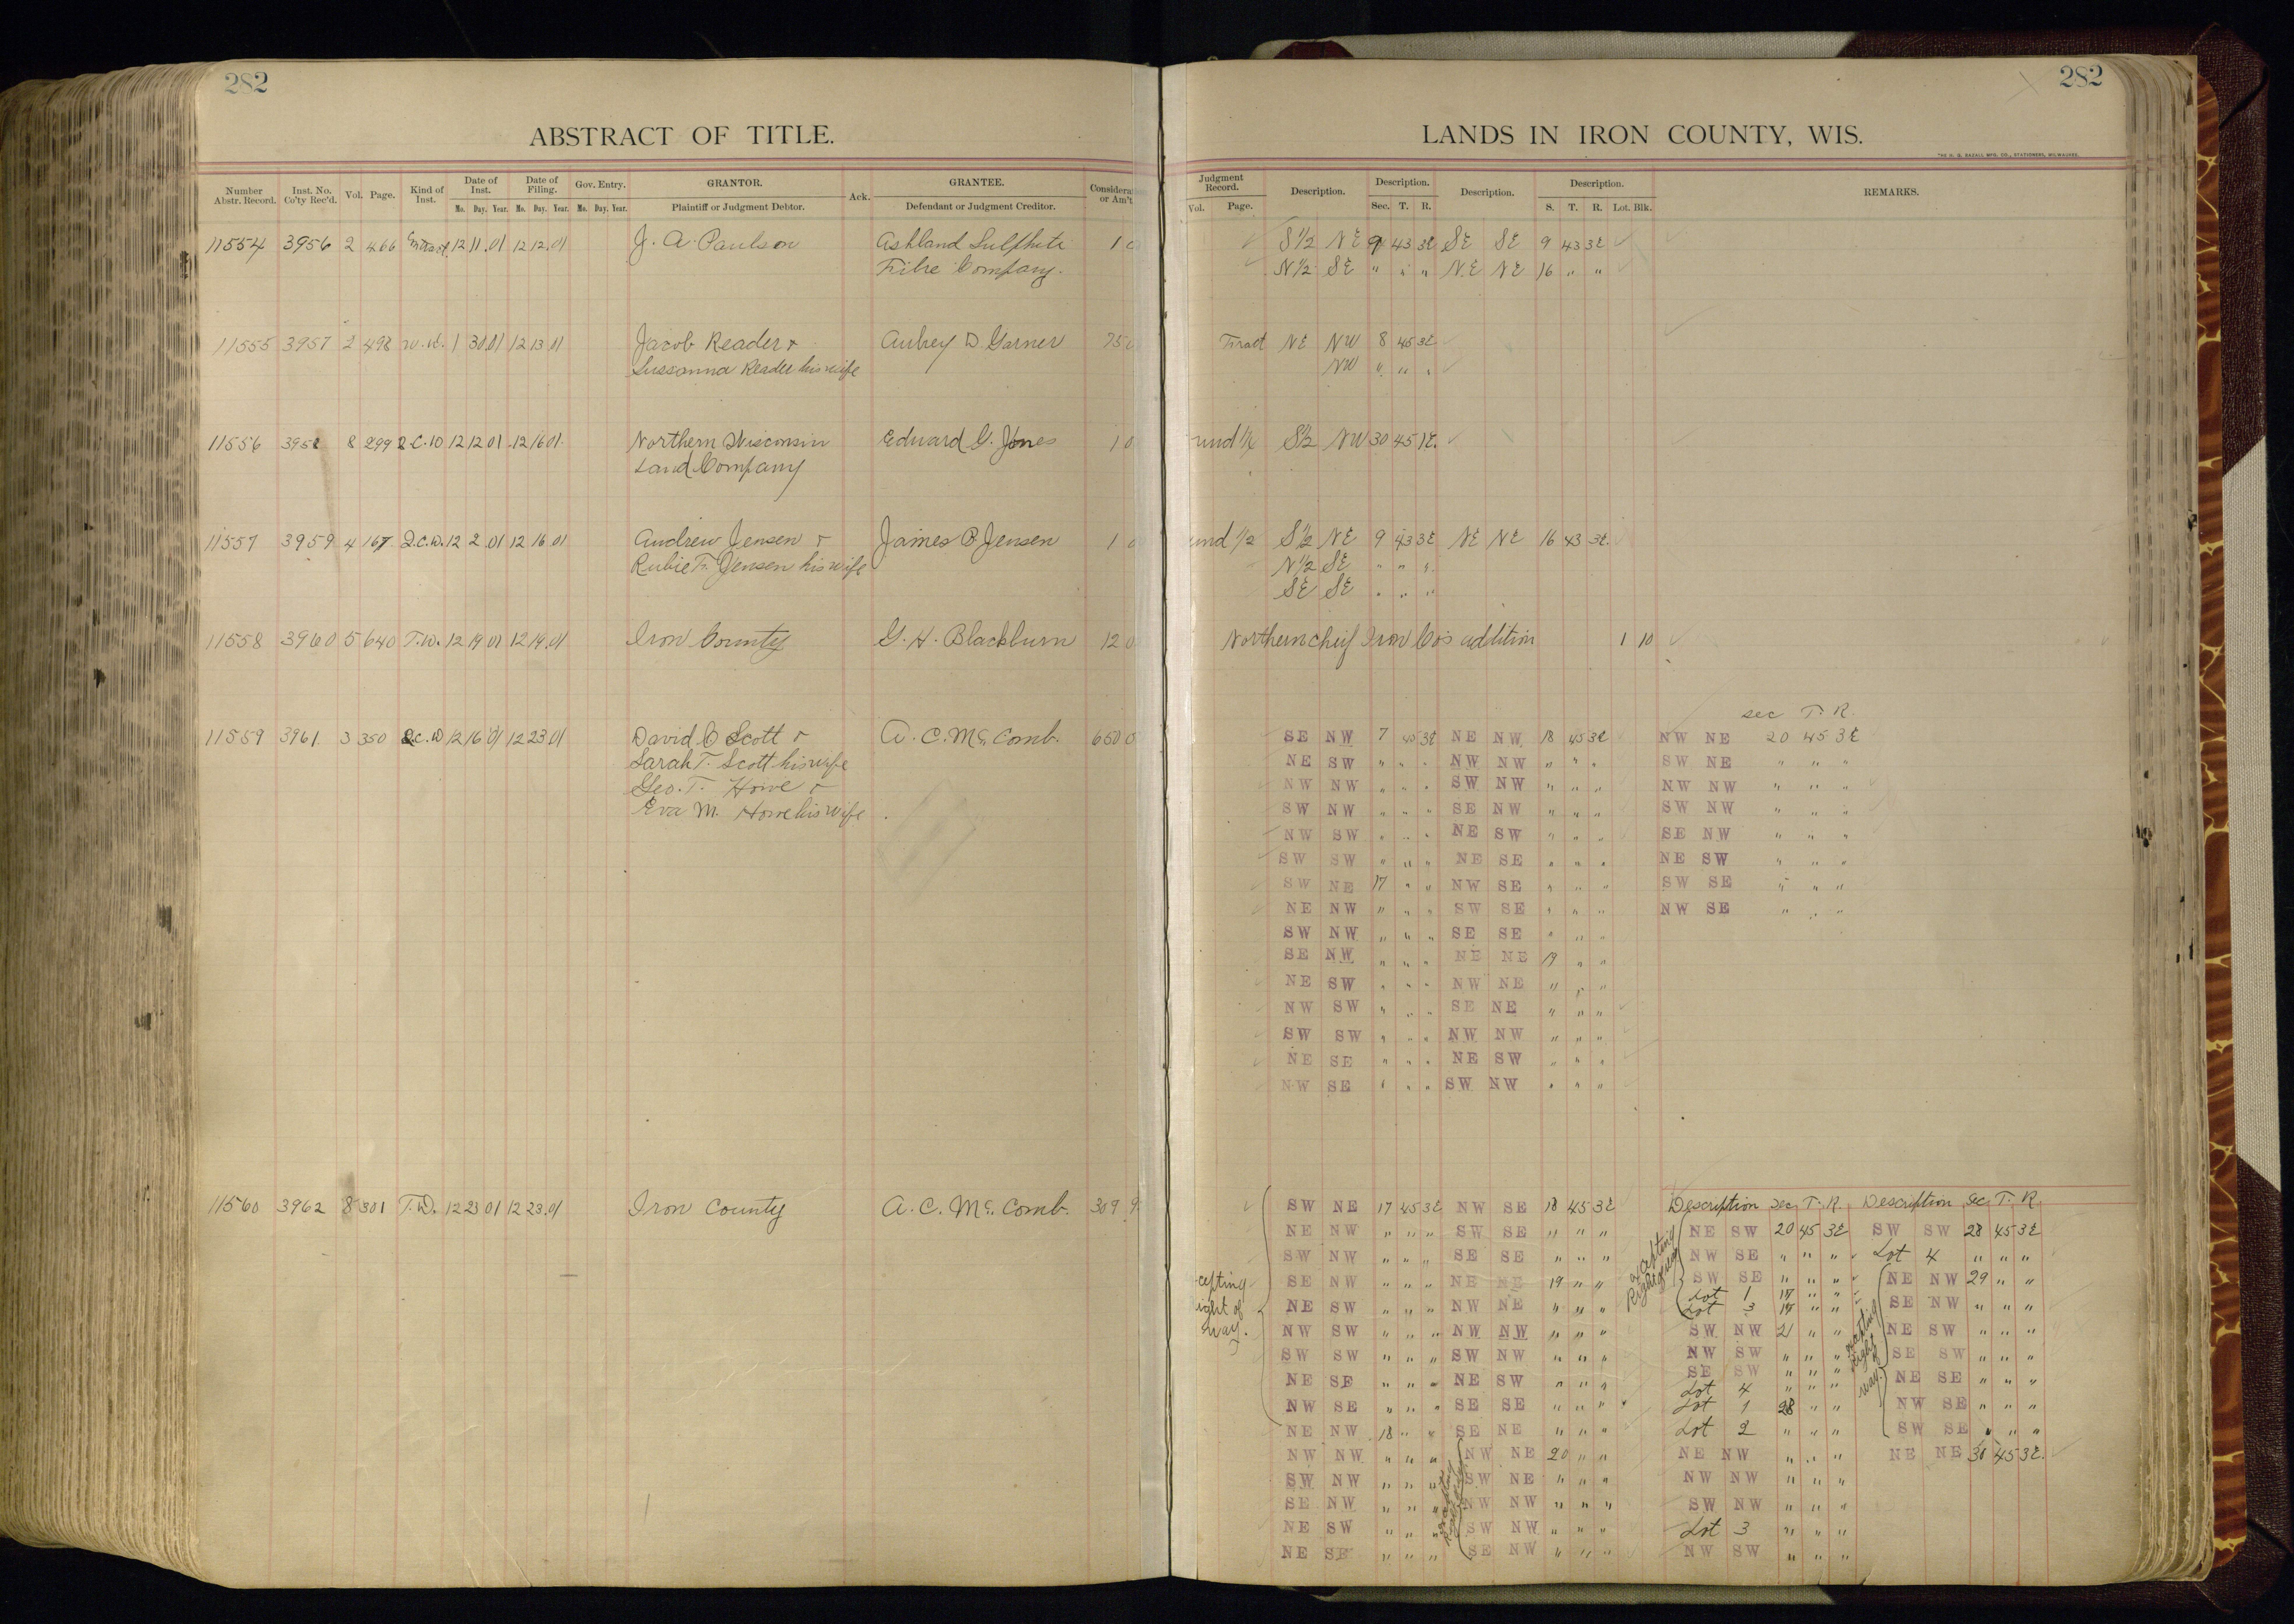 282
ABSTRACT OF TITLE.
Number Abstr. Record. Inst. No. Co'ty Rec'd. Vol. Page. Kind of Inst. Date of Inst. Mo. Day. Year. Date of Filing. Mo. Day. Year. Gov. Entry. Mo. Day. Year. GRANTOR. Plaintiff or Judgment Debtor. Ack. GRANTEE. Defendant or Judgment Creditor. Considerat or Am't
11554 3956 2 466 12 11 01 12 12 01 J. A. Paulson Ashland Sulphite 1 0
Fibre Company.
11555 3957 2 498 W.D. 1 30 01 12 13 01 Jacob Reader & Aubey D Garner 75 0
Sussanna Reader his wife
11556 3958 8 299 Q.C.D 12 12 01 12 16 01 Northern Wisconsin Edward G. Jones 1 0
Land Company
11557 3959 4 167 Q.C.D. 12 2 01 12 16 01 Andrew Jensen & James P. Jensen 1 0
Rubie F. Jensen his wife
11558 3960 5 640 T.D. 12 19 01 12 19 01 Iron County G. H. Blackburn 12 0
11559 3961 3 350 Q.C.D 12 16 01 12 23 01 David C Scott & A. C. McComb. 650 0
Sarah T. Scott his wife
Geo. T. Howe &
Eva M. Howe his wife
11560 3962 8 301 T.D. 12 23 01 12 23 01 Iron County A. C. McComb. 309 9
282
LANDS IN IRON COUNTY, WIS.
Judgment Record. Vol. Page. Description. Description. Sec. T. R. Description. Description. S. T. R. Lot. Blk. REMARKS.
S 1/2 NE 9 43 3E SE SE 9 43 3E
N 1/2 SE " " " NE NE 16 " "
Tract NE NW 8 45 3E
NW " " "
und S 1/2 NW 30 45 1E.
und 1/2 S 1/2 NE 9 43 3E NE NE 16 43 3E.
N 1/2 SE " " "
SE SE " " "
Northern Chief Iron Co's addition 1 10
sec T. R.
SE NW 7 45 3E NE NW 18 45 3E NW NE 20 45 3E
NE SW " " " NW NW " " " SW NE " " "
NW NW " " " SW NW " " " NW NW " " "
SW NW " " " SE NW " " " SW NW " " "
NW SW " " " NE SW " " " SE NW " " "
SW SW " " " NE SE " " " NE SW " " "
SW NE 17 " " NW SE " " " SW SE " " "
NE NW " " " SW SE " " " NW SE " " "
SW NW " " " SE SE " " "
SE NW " " " NE NE 19 " "
NE SW " " " NW NE " " "
NW SW " " " SE NE " " "
SW SW " " " NW NW " " "
NE SE " " " NE SW " " "
NW SE " " " SW NW " " "
Description Sec T. R. Description Sec T. R.
SW NE 17 45 3E NW SE 18 45 3E NE SW 20 45 3E SW SW 28 45 3E
NE NW " " " SW SE " " " NW SE " " " Lot 4 " " "
SW NW " " " SE SE " " " SW SE " " " NE NW 29 " "
SE NW " " " NE NE 19 " " Lot 1 17 " " SE NW " " "
NE SW " " " NW NE " " " Lot 3 17 " " NE SW " " "
NW SW " " " NW NW " " " SW NW 21 " " SE SW " " "
SW SW " " " SW NW " " " NW SW " " " NE SE " " "
NE SE " " " NE SW " " " SE SW " " " NW SE " " "
NW SE " " " SE SE " " " Lot 4 " " " SW SE " " "
NE NW 18 " " SE NE " " " Lot 1 28 " " NE NE 30 45 3E.
NW NW " " " NW NE 20 " " Lot 2 " " "
SW NW " " " SW NE " " " NE NW " " "
SE NW " " " NW NW " " " NW NW " " "
NE SW " " " SW NW " " " SW NW " " "
NE SE " " " SE NW " " " Lot 3 " " "
NW SW " " "
cepting
ight of
way.
excepting
Right of way
excepting
right of
way.